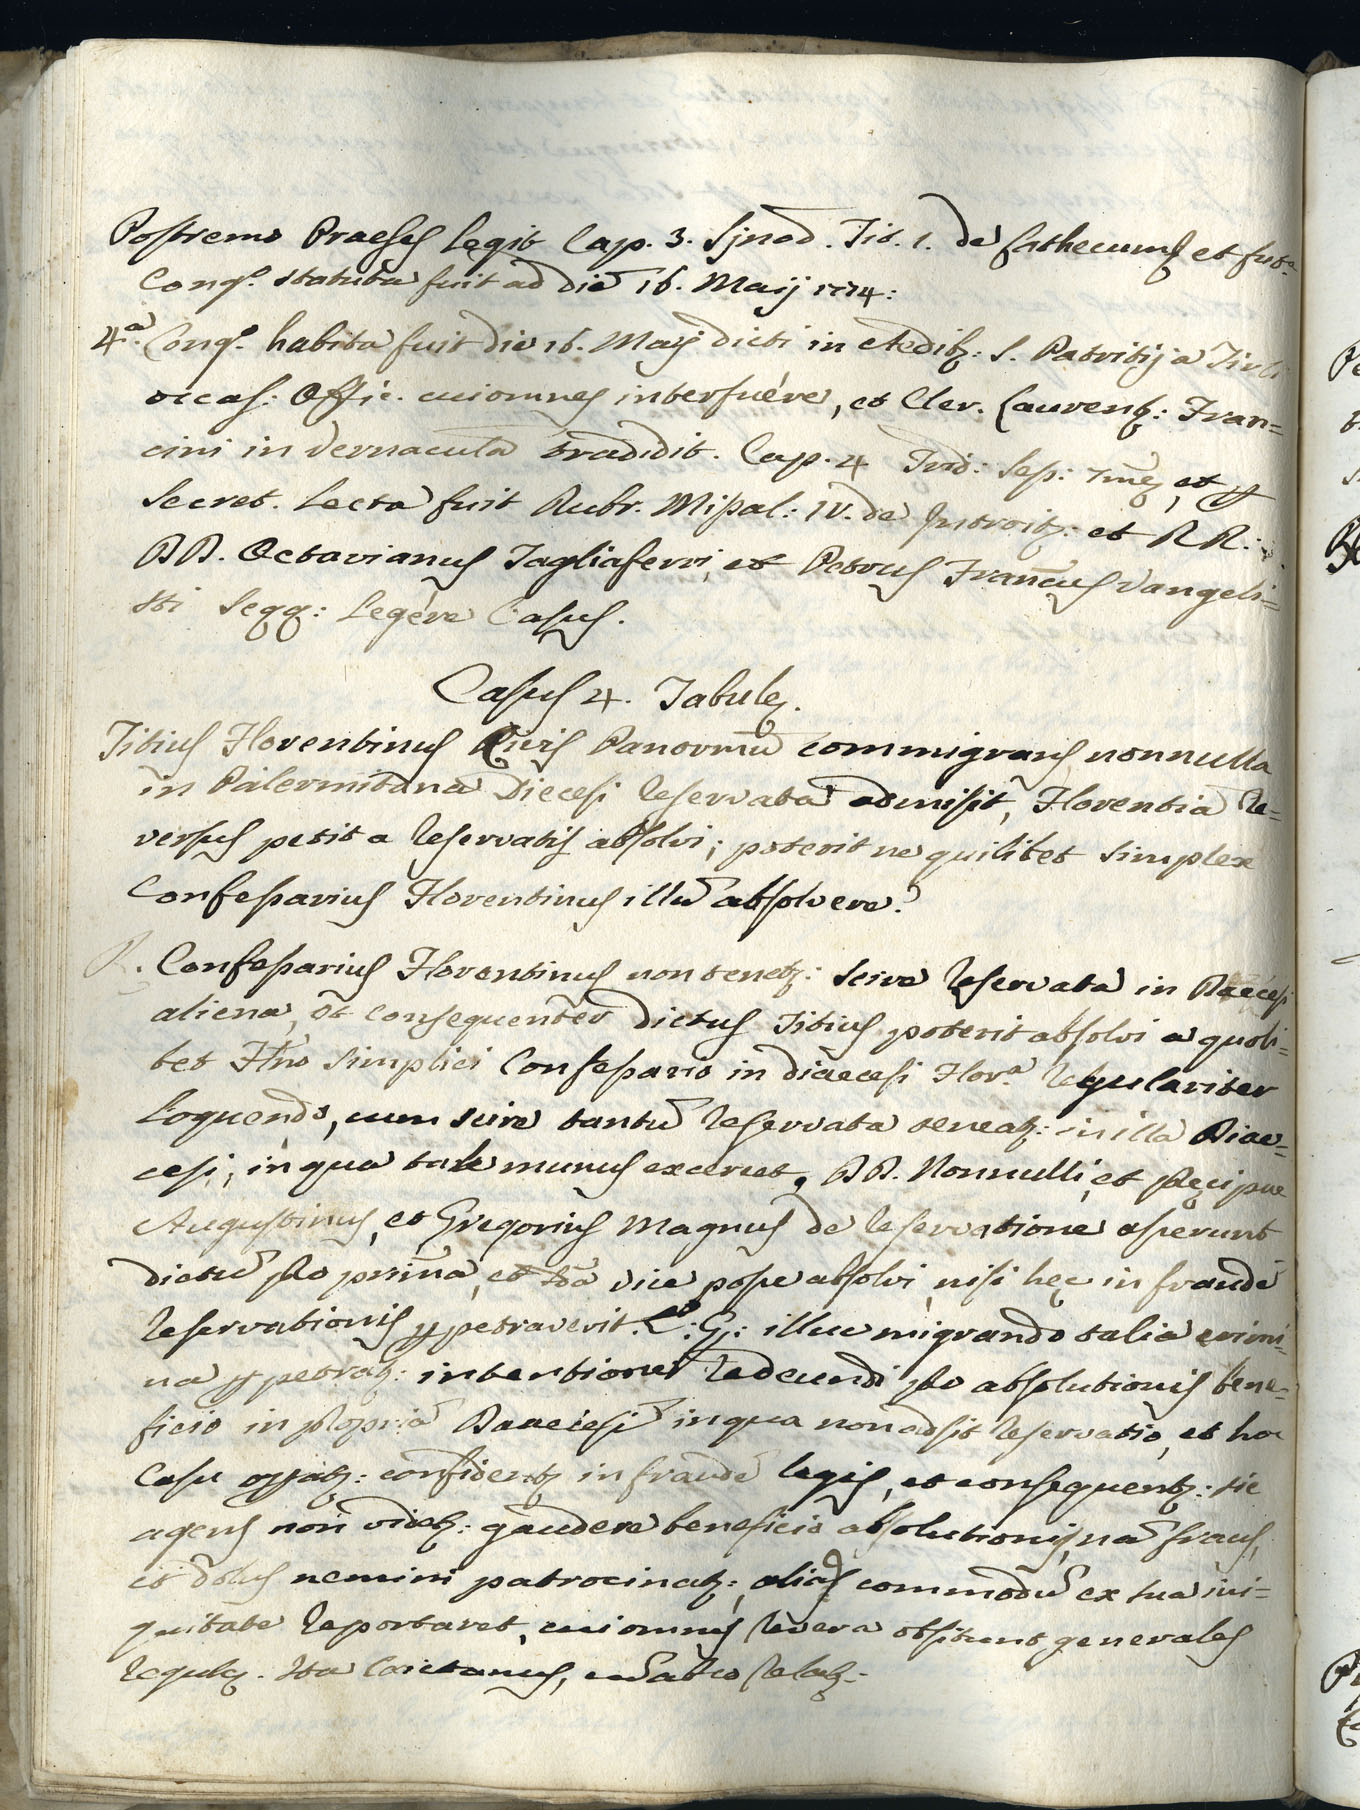 Postremo Praeses legit Cap. 3. Sjnod. Tit. 1. de Cathecums et fut.ª
Cong.º statuta fuit ad diē 16. Maij 1774:
4.ª Cong.º habita fuit die 16. Maij dicti in Aedibz: S. Patritij a Tirli
occas: Offic. cui omnes interfuére, et Cler. Laurentz: Fran=
cini in vernacula tradidit. Cap. 4 Trid: Sess: et
Secret. Lecta fuit Rubr. Missal: IV. de Introitz: et RR:
DD. Octavianus Tagliaferri, et Petrus Franc̄us Vangeli=
sti seqq: legére Casus.
Casus 4. Tabulę.
Titius Florentinus Civis Panormū commigrans nonnulla
in Palermitana Diecesi reservata admisit, Florentia re=
versus petit a reservatis absolvi; poterit ne quilibet simplex
Confessarius Florentinus illū absolvere?
R. Confessarius Florentinus non tenetz: scire reservata in Diaecesi
aliena, et consequenter dictus Titius poterit absolvi a quoli=
bet Flño simplici Confessario in diaecesi Flor.ª regulariter
loquendo, cum scire tantū reservata teneatz: in illa Diae=
cesi, in qua tale munus exercet. DD. Nonnulli, et pręcipue
Augustinus, et Gregorius Magnus de reservatione asserunt
dictū pro prim̄a, et 2da vice posse absolvi, nisi hęc in fraudē
reservationis ppetraverit. V: G: illuc migrando talia crimi=
na ppetratz: intentione redeundi pro absolutionis bene=
ficio in propria Diaecesi in qua non adsit reservatio, et hoc
casu in fraudē legis, et consequentz: sic
agens non videtz: gaudere beneficio absolutionis, nā fraus,
et dolus nemini patrocinatz: alias commodū ex sua ini=
quitate reportaret, cui omnes revera obsistunt generales
regulę. Ita Caietanus,